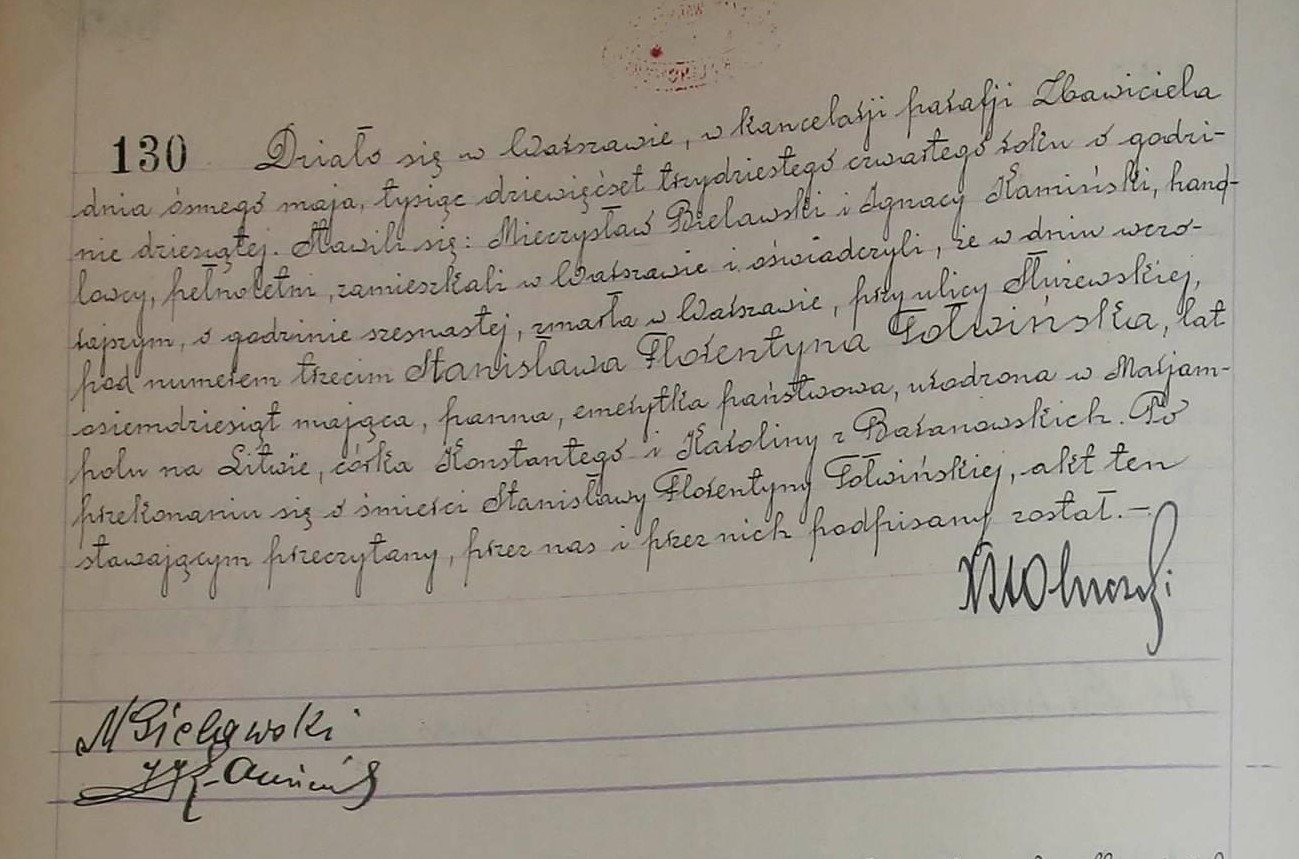 130 Działo się w Warszawie, w kancelarji parafji Zbawiciela
dnia ósmego maja, tysiąc dziewięćset trzydziestego czwartego roku o godzi-
nie dziesiątej. Stawili się: Mieczysław Bielawski i Ignacy Kamiński, hand-
lowcy, pełnoletni, zamieszkali w Warszawie i oświadczyli, że w dniu wczo-
rajszym, o godzinie szesnastej, zmarła w Warszawie, przy ulicy Służewskiej,
pod numerem trzecim Stanisława Florentyna Fołwińska, lat
osiemdziesiąt mająca, panna, emerytka państwowa, urodzona w Marjam-
polu na Litwie, córka Konstantego i Karoliny z Baranowskich. Po
przekonaniu się o śmierci Stanisławy Florentyny Fołwińskiej, akt ten
stawającym przeczytany, przez nas i przez nich podpisany został.—
M Bielawski